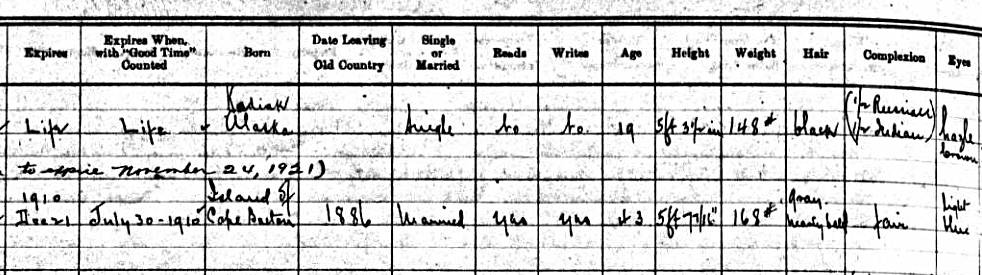 Expires Expires When, with "Good Time" Counted Born Date Leaving Old Country Single or Married Reads Writes Age Height Weight Hair Complexion Eyes
Kodiak (1/2 Russian
Life Life Alaska Single No No. 19 5ft 3 1/2 in 148# black 1/2 Indian) hazle
brown
to expire November 24, 1921)
1910 Island of gray light
Dec 21 July 30-1910 Cape Breton 1886 Married yes yes 43 168# nearly bald fair blue